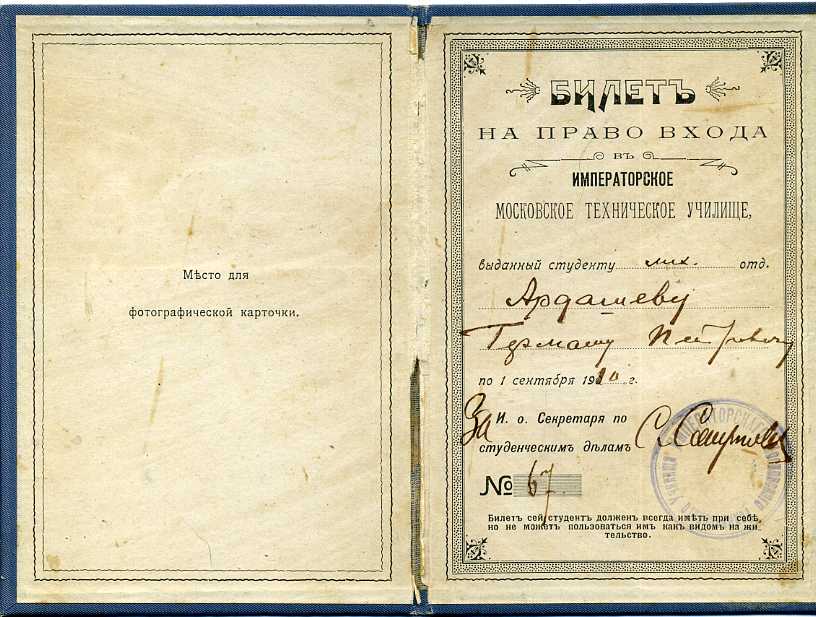 Мѣсто для
фотографической карточки.
БИЛЕТЪ
НА ПРАВО ВХОДА
ВЪ
ИМПЕРАТОРСКОЕ
МОСКОВСКОЕ ТЕХНИЧЕСКОЕ УЧИЛИЩЕ,
выданный студенту мех. отд.
Ардашеву
Герману Петровичу
по 1 сентября 19 г.
За И. о. Секретаря по
студенческимъ дѣламъ
№ 67
Билетъ сей студентъ долженъ всегда имѣть при себѣ,
но не можетъ пользоваться имъ какъ видомъ на жи-
тельство.